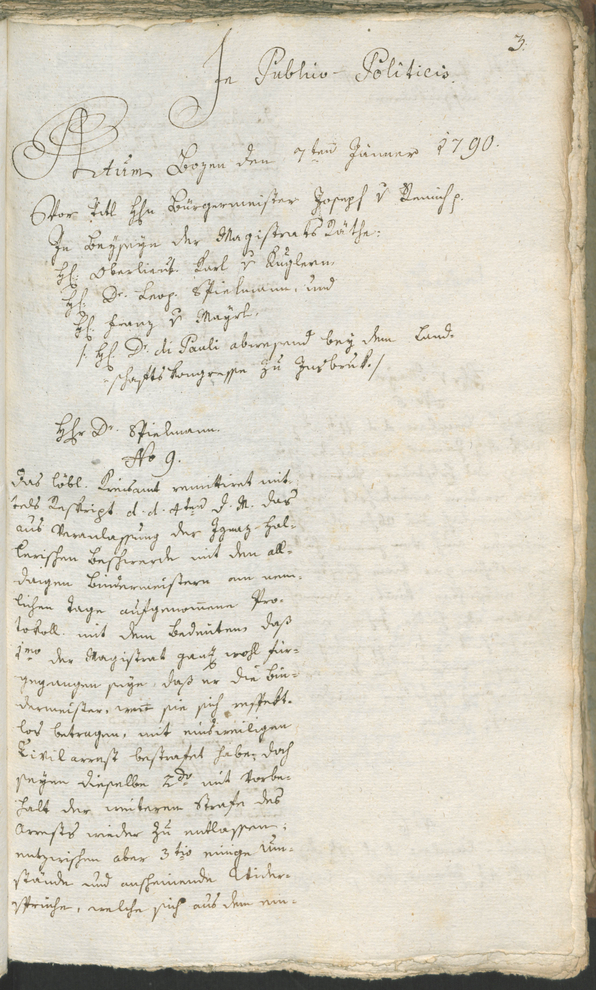 3.
In Publico-Politicis.
Actum Bozen den 7ten Jänner 1790.
Vor Titl Hhn Bürgermeister Joseph v Remich p.
In Beyseyn der Magistrats Räthe:
HH: Oberlieut. Karl v Kuglern
HH. Dr. Leop. Spielmann, und
HH. Franz v Mayrl.
/: HH. Dr. di Pauli abwesend bey dem Land-
schafts kongresse zu Insbruk :/
HHr Dr. Spielmann.
No 9.
Das löbl. Kreisamt remittiret mit-
tels Reskript d. d. 4ten d. M. das
aus Veranlassung der Ignaz-Hal-
lerischen Beschwerde mit den all-
daigen Bindermeistern am nem-
lichen Tage aufgenommene Pro-
tokoll mit dem Bedeuten, daß
1mo der Magistrat ganz wohl für-
gegangen seye, daß er die Bin-
dermeister, weil sie sich respekt-
los betragen, mit einsweiligen
Civilarrest bestrafet habe; doch
seyen dieselbe 2do mit Vorbe-
halt der weiteren Strafe des
Arrests wieder zu entlassen;
entzwischen aber 3tio einige Um-
stände und anscheinende Wider-
sprüche, welche sich aus dem ein-